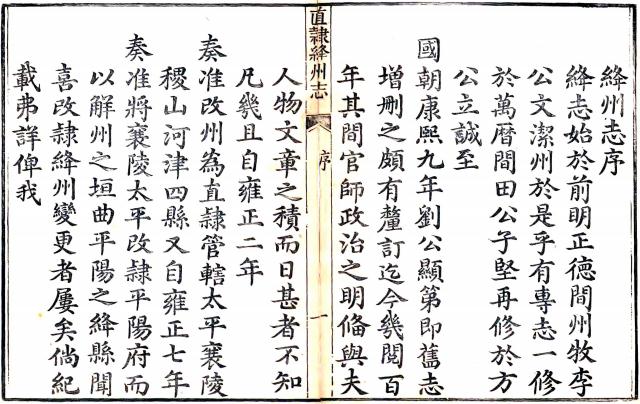 絳州志序
絳志始於前明正德間州牧李
公文潔州於是乎有專志一修
於萬曆間田公子堅再修於方
公立誠至
國朝康熙九年劉公顯第即舊志
增刪之頗有釐訂迄今幾閱百
年其間官師政治之明備與夫
直隷絳州志
序
一
人物文章之積而日甚者不知
凡幾且自雍正二年
奏准改州為直隷管轄太平襄陵
稷山河津四縣又自雍正七年
奏准將襄陵太平改隷平陽府而
以解州之垣曲平陽之絳縣聞
喜改隷絳州變更者屢矣倘紀
載弗詳俾我